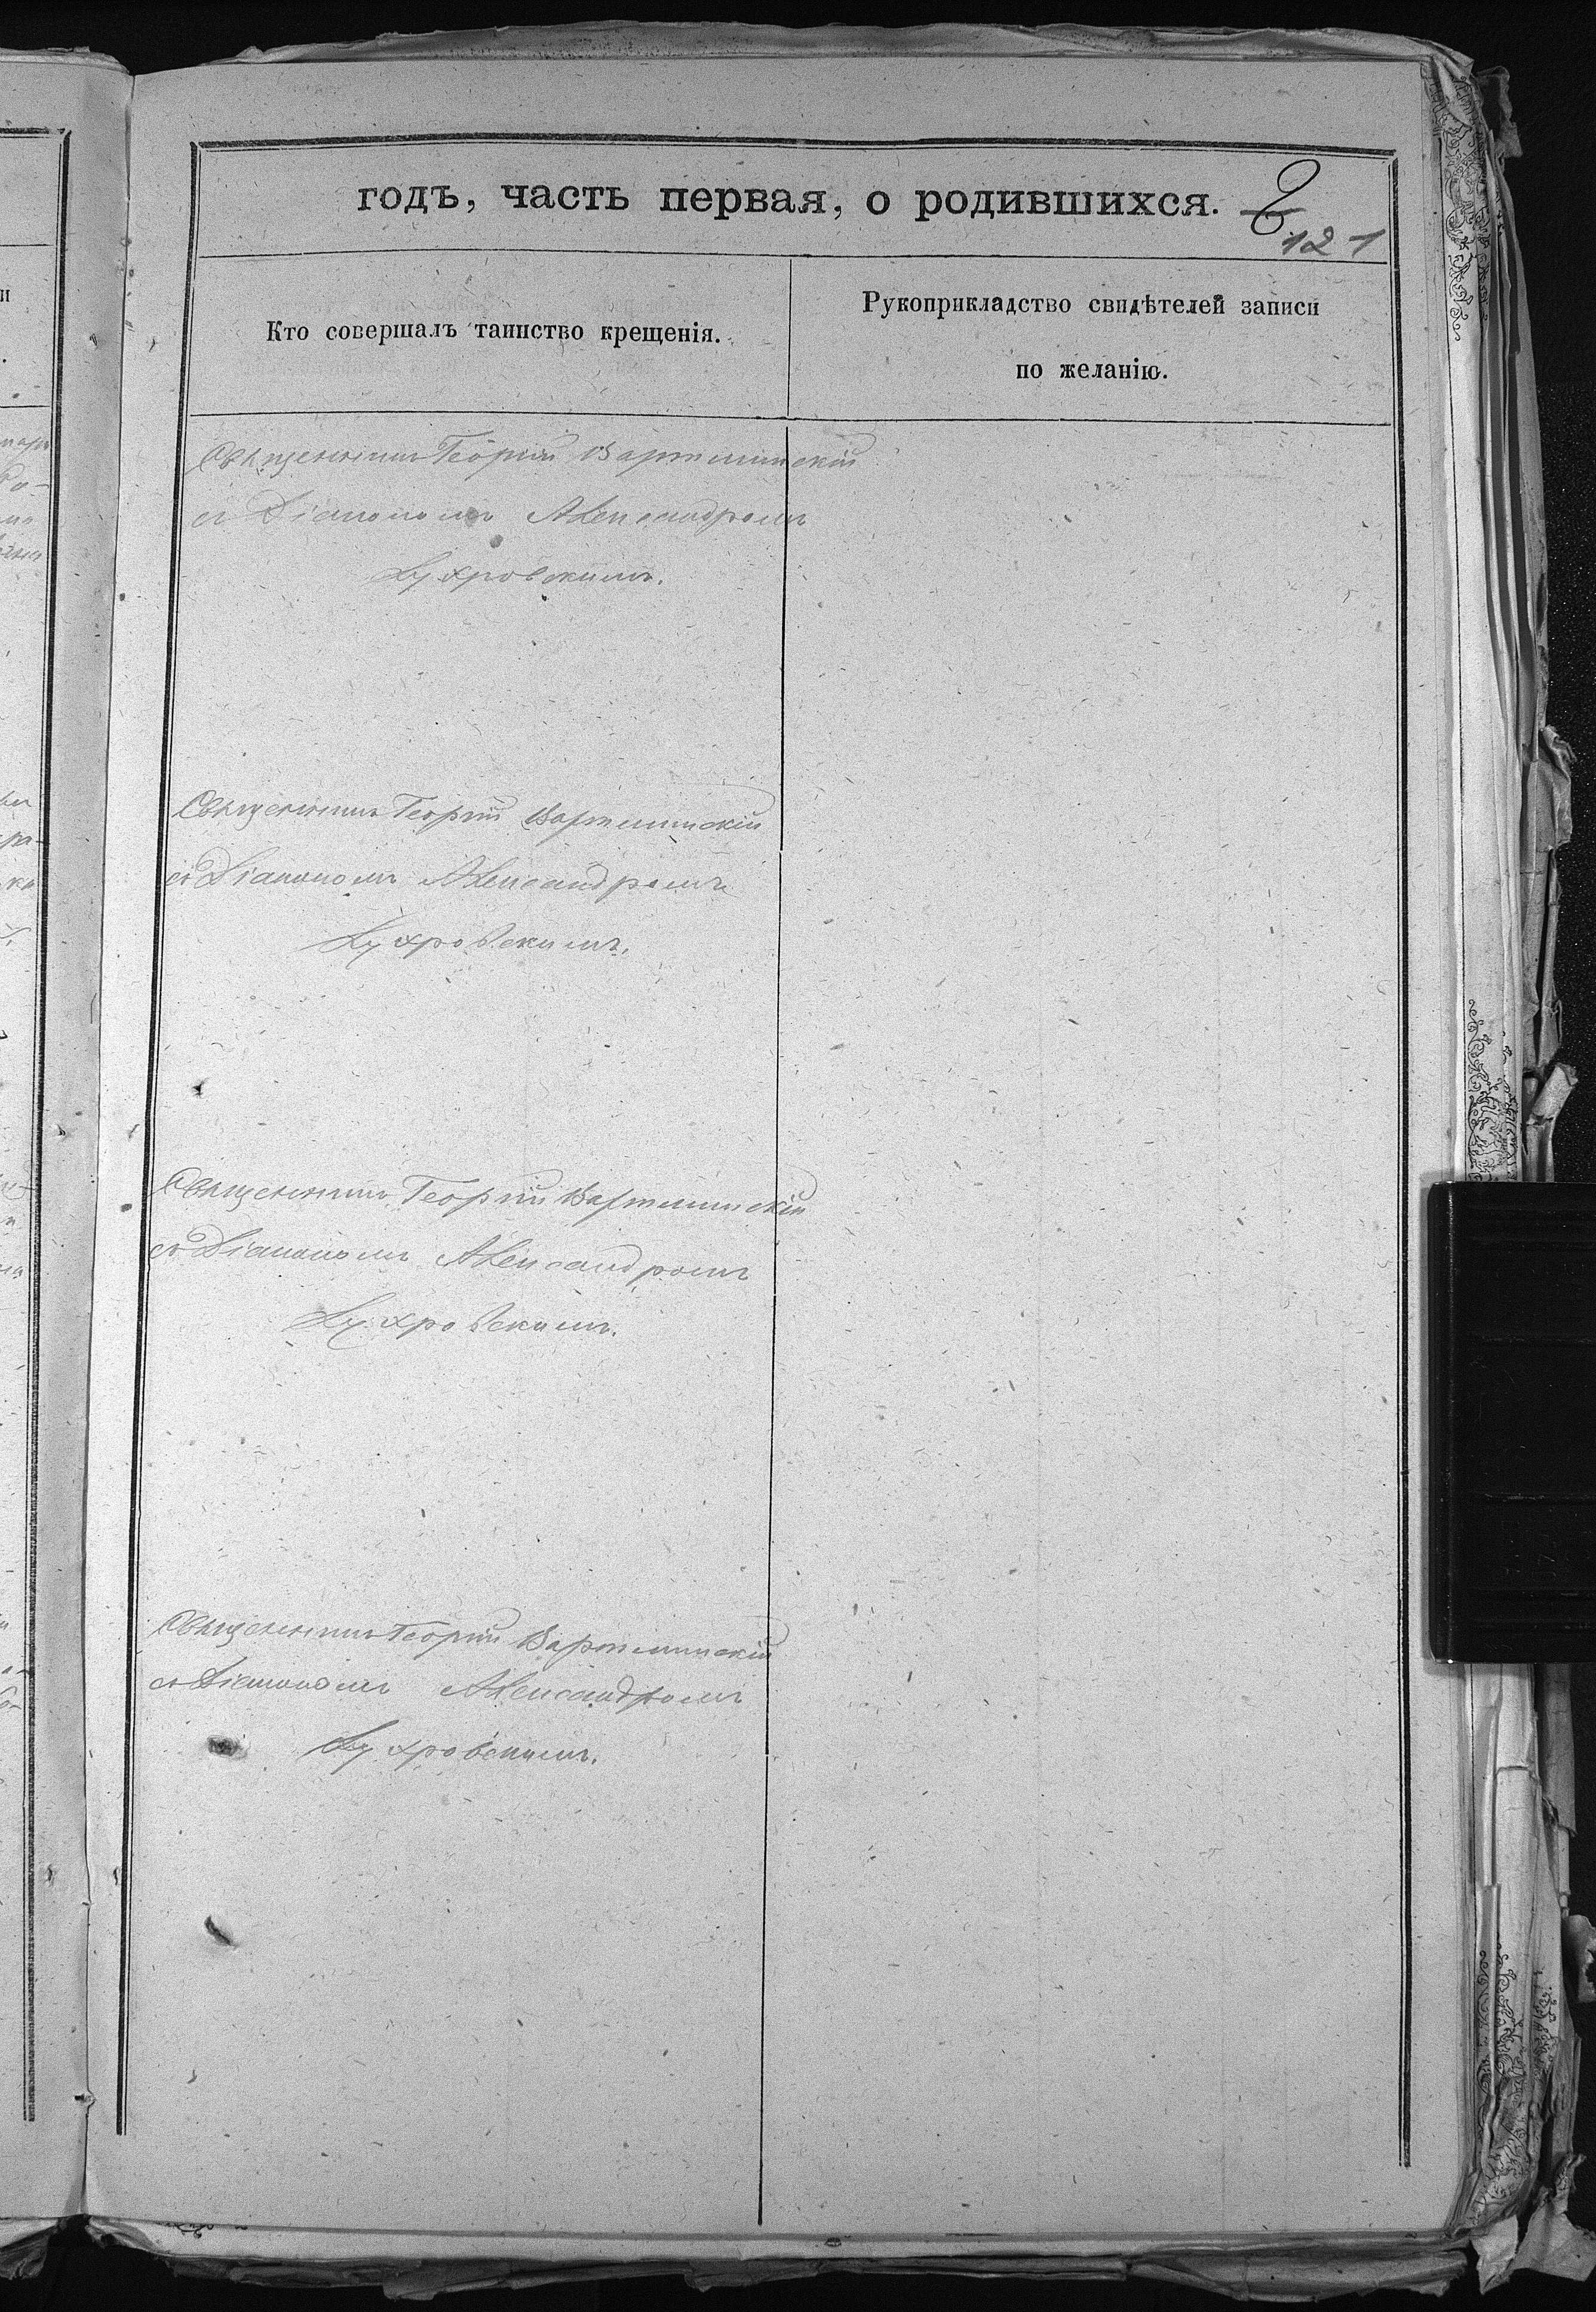 годъ, часть первая, о родившихся.
2
121
Кто совершалъ таинство крещенія.
Рукоприкладство свидѣтелей записи
по желанію.
Священникъ Георгій Вартминскій
съ Діакономъ Александромъ
Цухровскимъ.
Священникъ Георгій Вартминскій
съ Діакономъ Александромъ
Священникъ Георгій Вартминскій
съ Діакономъ Александромъ
Священникъ Георгій Вартминскій
съ Діакономъ Александромъ